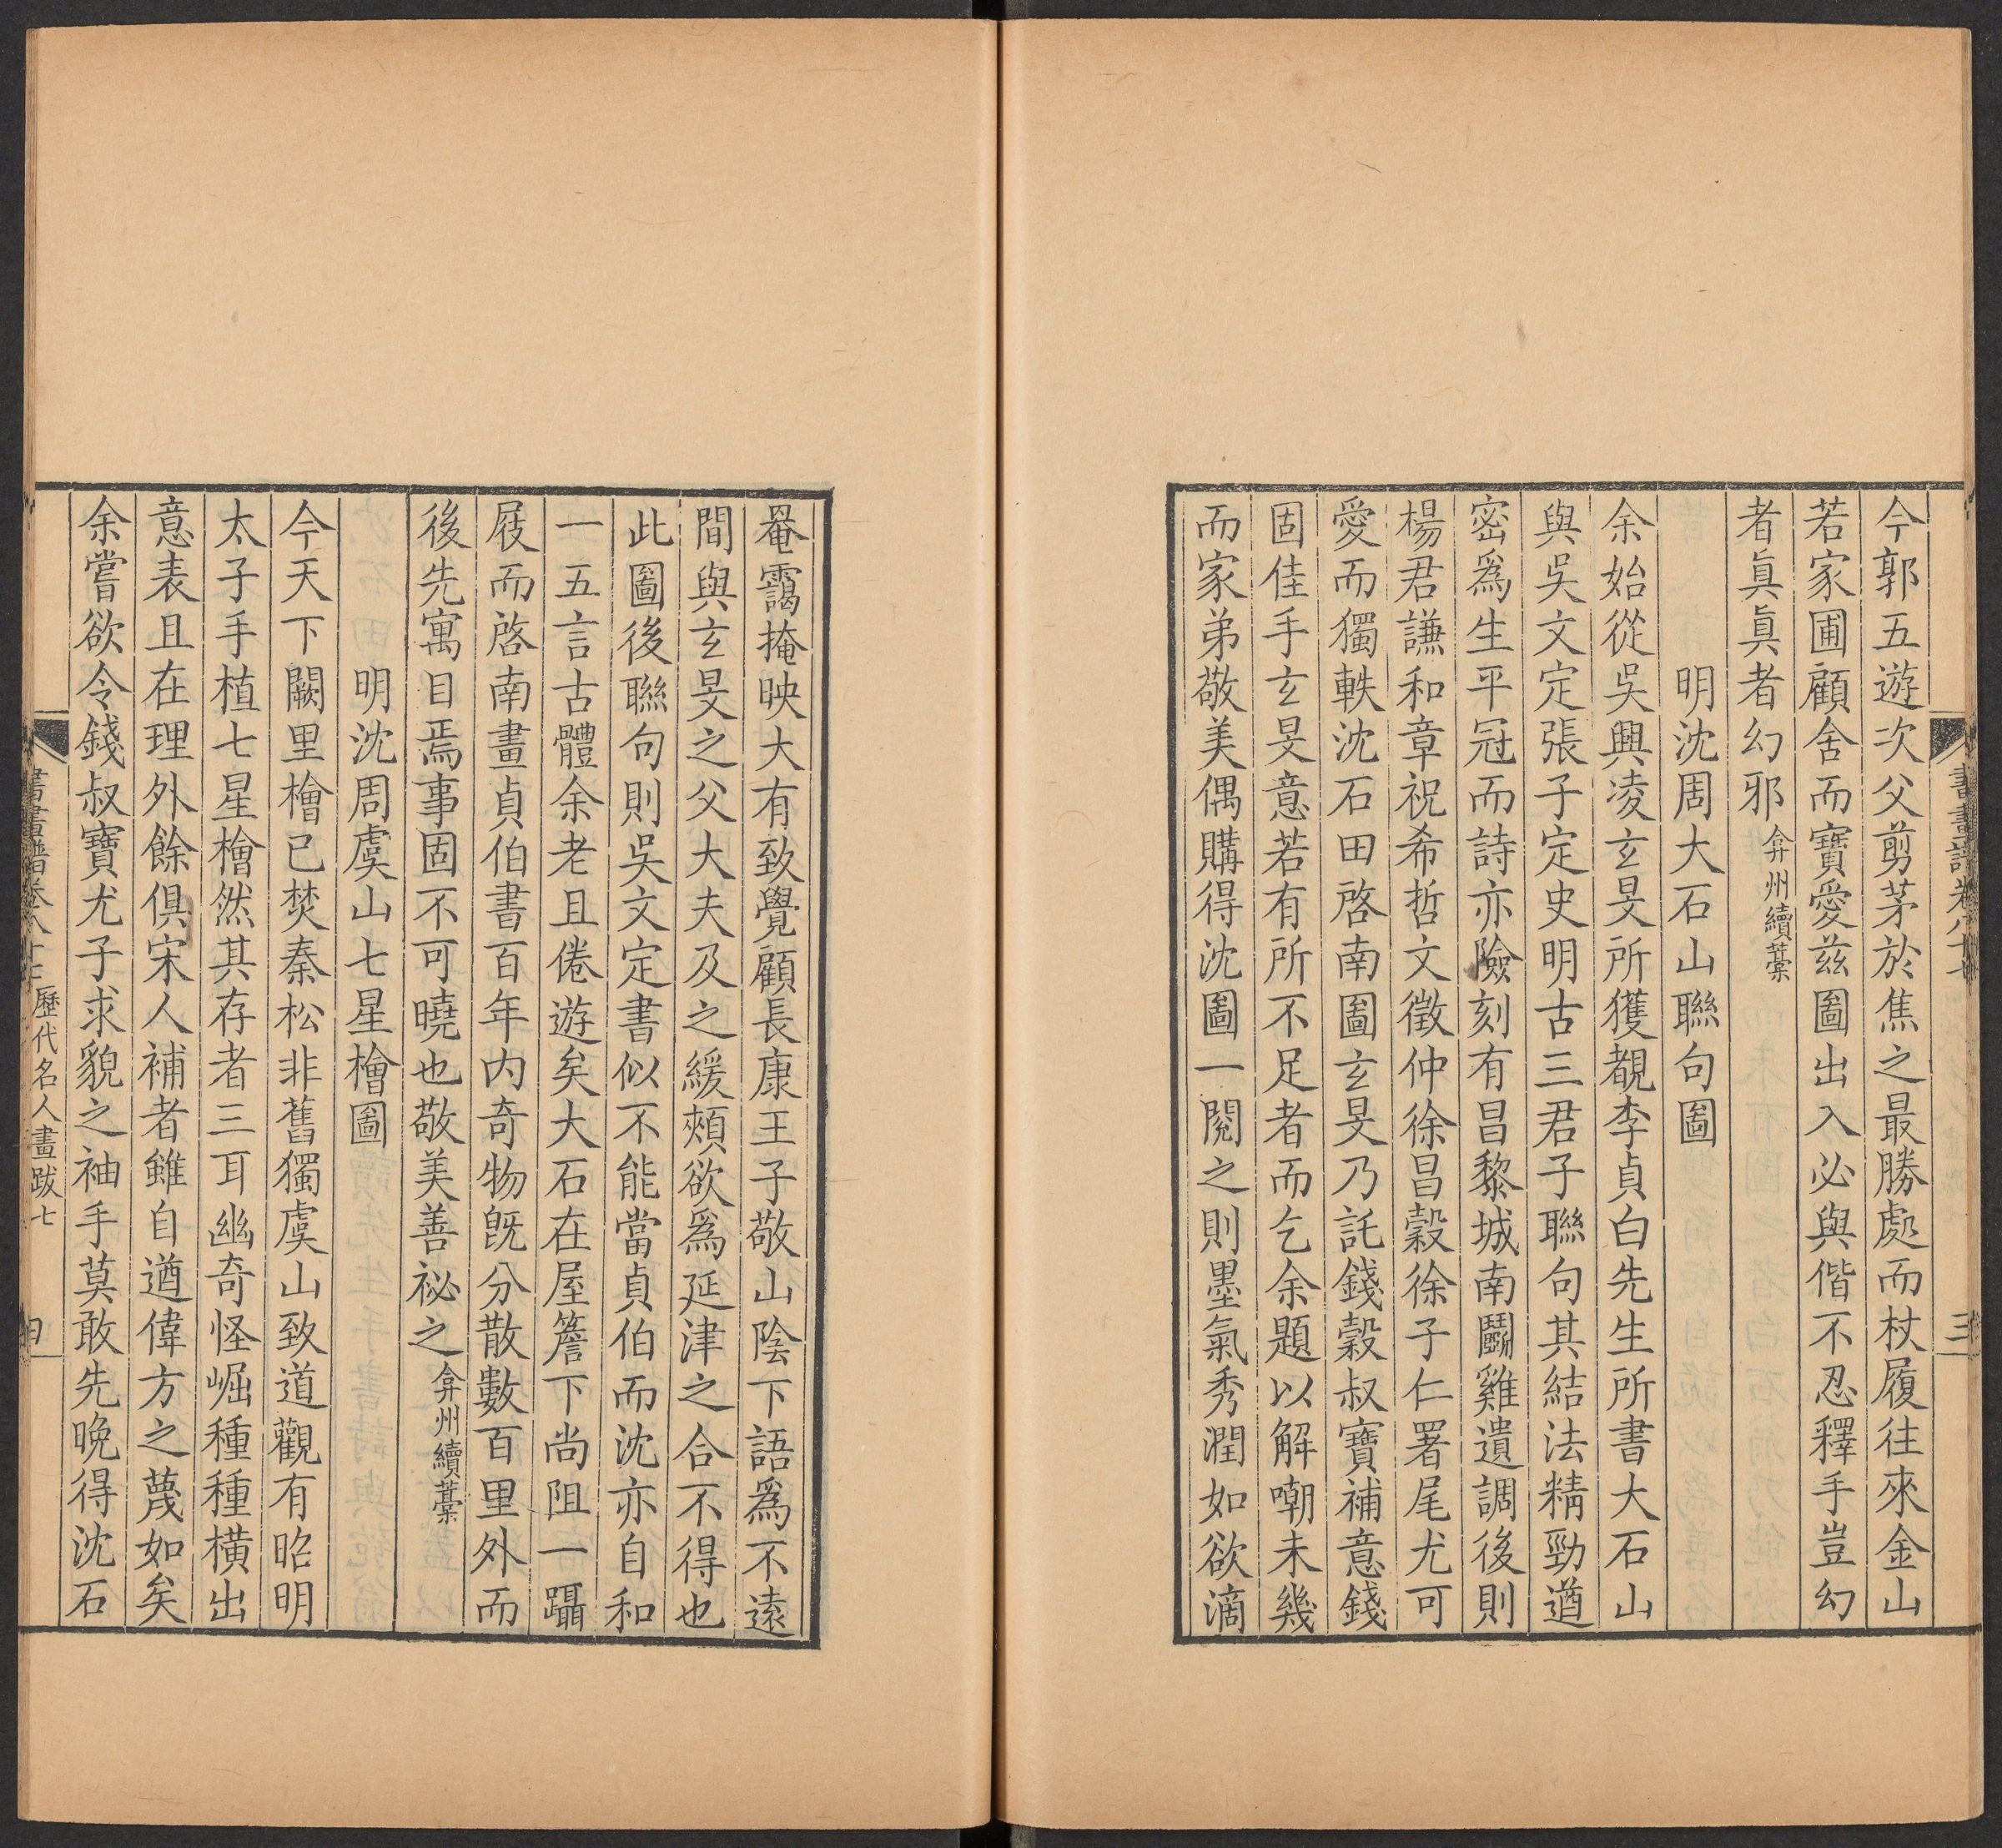 今郭五遊次父剪茅於焦之最勝處而杖履往來金山
若家圃顧舍而寶愛兹圖出入必與偕不忍釋手豈幻
者眞眞者幻邪弇州續藁
明沈周大石山聯句圖
余始從吳興凌玄旻所獲覩李貞白先生所書大石山
與吳文定張子定史明古三君子聯句其結法精勁遒
密爲生平冠而詩亦險刻有昌黎城南鬭雞遺調後則
楊君謙和章祝希哲文徵仲徐昌穀徐子仁署尾尤可
愛而獨軼沈石田啓南圖玄旻乃託錢穀叔寶補意錢
固佳手玄旻意若有所不足者而乞余題以解嘲未幾
而家弟敬美偶購得沈圖一閱之則墨氣秀潤如欲滴
書畫譜卷八十七
三
罨靄掩映大有致覺顧長康王子敬山陰下語爲不遠
間與玄旻之父大夫及之緩頰欲爲延津之合不得也
此圖後聯句則吳文定書似不能當貞伯而沈亦自和
一五言古體余老且倦遊矣大石在屋簷下尚阻一躡
屐而啓南畫貞伯書百年内奇物旣分散數百里外而
後先寓目焉事固不可曉也敬美善祕之弇州續藁
明沈周虞山七星檜圖
今天下闕里檜已焚秦松非舊獨虞山致道觀有昭明
太子手植七星檜然其存者三耳幽奇怪崛種種橫出
意表且在理外餘俱宋人補者雖自遒偉方之蔑如矣
余嘗欲令錢叔寶尤子求貌之袖手莫敢先晚得沈石
書畫譜卷八十七 歷代名人畫跋七